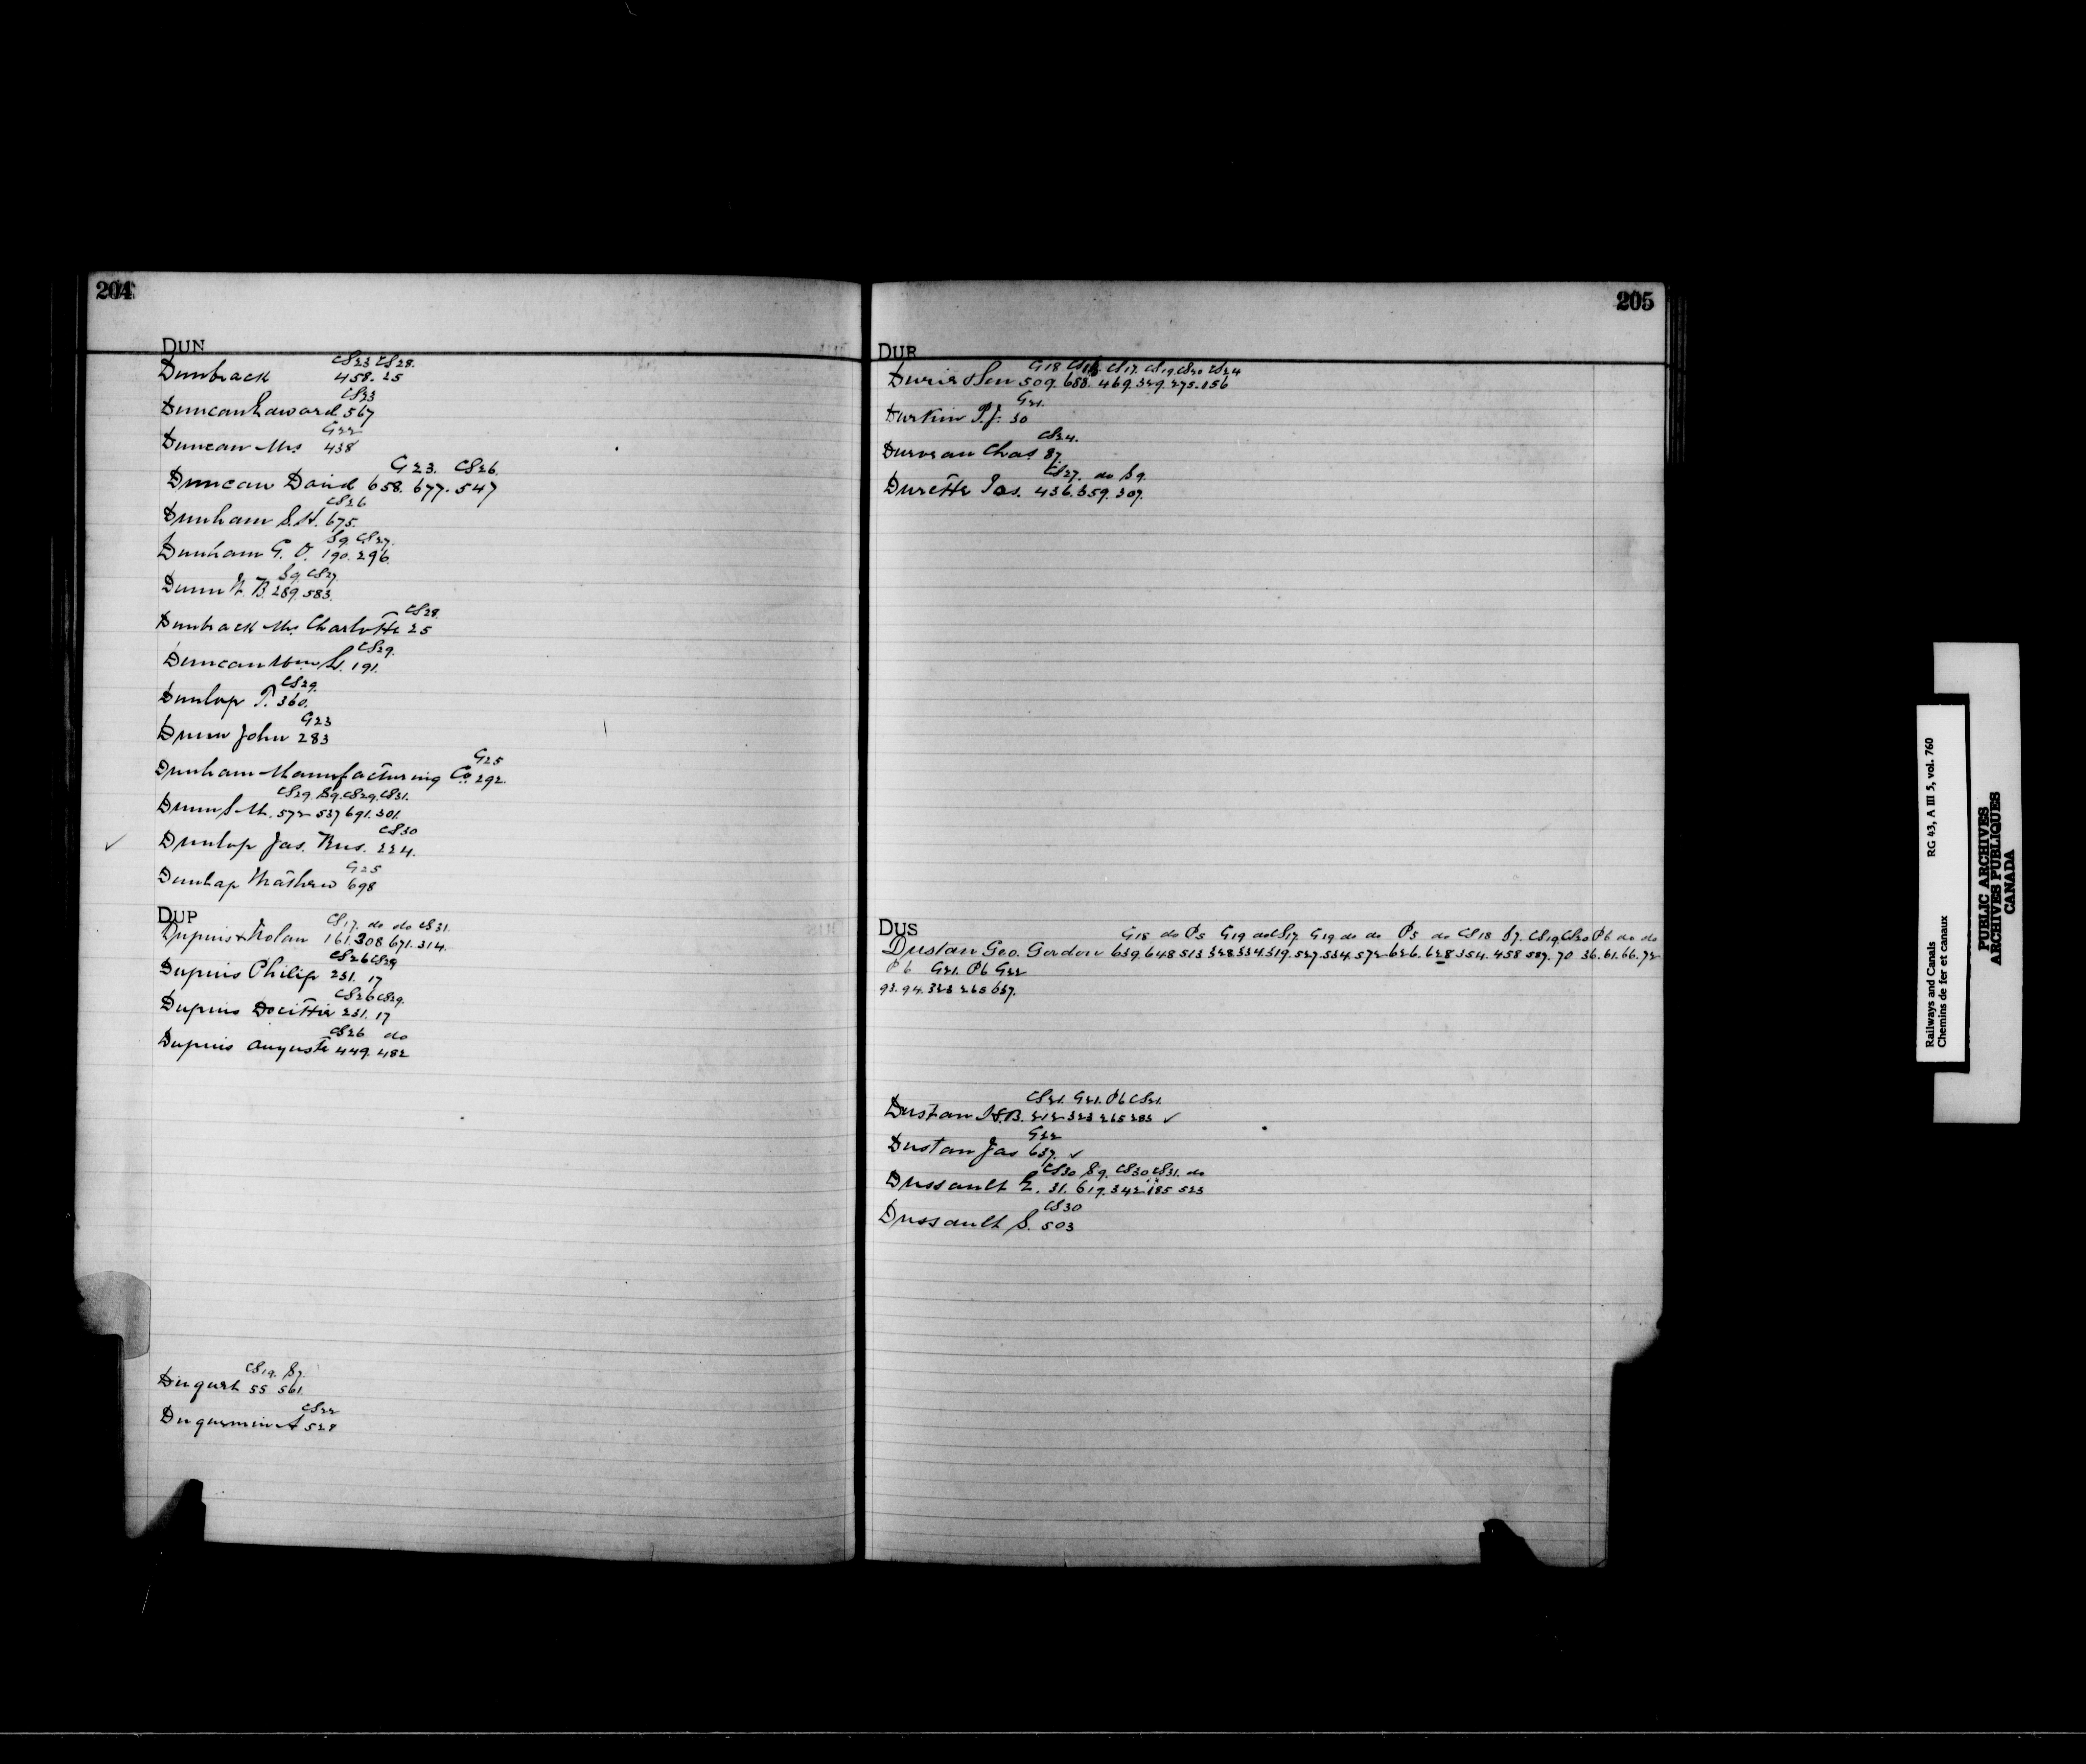 204
DUN
CS23 CS28.
Dunbrack 458. 25
CS23
Duncan Edward 567
G22
Duncan Mrs 438
G23. CS26.
Duncan David 658. 677. 547
CS26
Dunham S.H. 675.
S9. CS27.
Dunham G. O. 190. 296.
S9. CS27.
Dunn W. B. 289. 583.
CS28.
Dunbrack Mrs. Charlotte 25
CS29.
Duncan Wm 191.
CS29.
Dunlop T. 360.
G23
Dunn John 283
G25
Dunham Manufacturing Co. 292.
CS29. S9. CS29. CS31.
Dunn S. M. 572 537 691. 301.
CS30
Dunlop Jas. 224.
G25
Dunlap Mathew 698
DUP
CS17. do do CS31.
Dupuis & Nolan 161. 308 671. 314.
CS26 CS29
Dupuis Philip 231. 17
CS26 CS29.
Dupuis 231. 17
CS26 do
Dupuis Auguste 449. 482
CS19. S7.
55 561.
CS22
205
DUR
G18 CS17. CS19. CS20 CS24
509. 688. 469. 329. 275. 156
G21.
Durkin P. J. 30
CS24.
Chas 87.
CS27. do S9.
Durette Jos. 436. 359. 307.
DUS
G18 do P5 G19 do CS17 G19 do do P5 do CS18 S7. CS19. CS20 P6 do do
Dustan Geo. Gordon 639. 648 513 328. 334. 319. 527. 534. 572 626. 628 354. 458 587. 70 36. 61. 66. 72
P6 G21. P6 G22
93. 94. 323 265 637.
CS21. G21. P6 CS21.
Dustan 212 323 265 283 ✓
G22
Dustan Jas 637. ✓
CS30 S9. CS30 CS31. do
Dussault E. 31. 619. 342. 185 523
CS30
Dussault S. 503
Railways and Canals RG 43, A III 5, vol. 760
Chemins de fer et canaux
PUBLIC ARCHIVES
ARCHIVES PUBLIQUES
CANADA